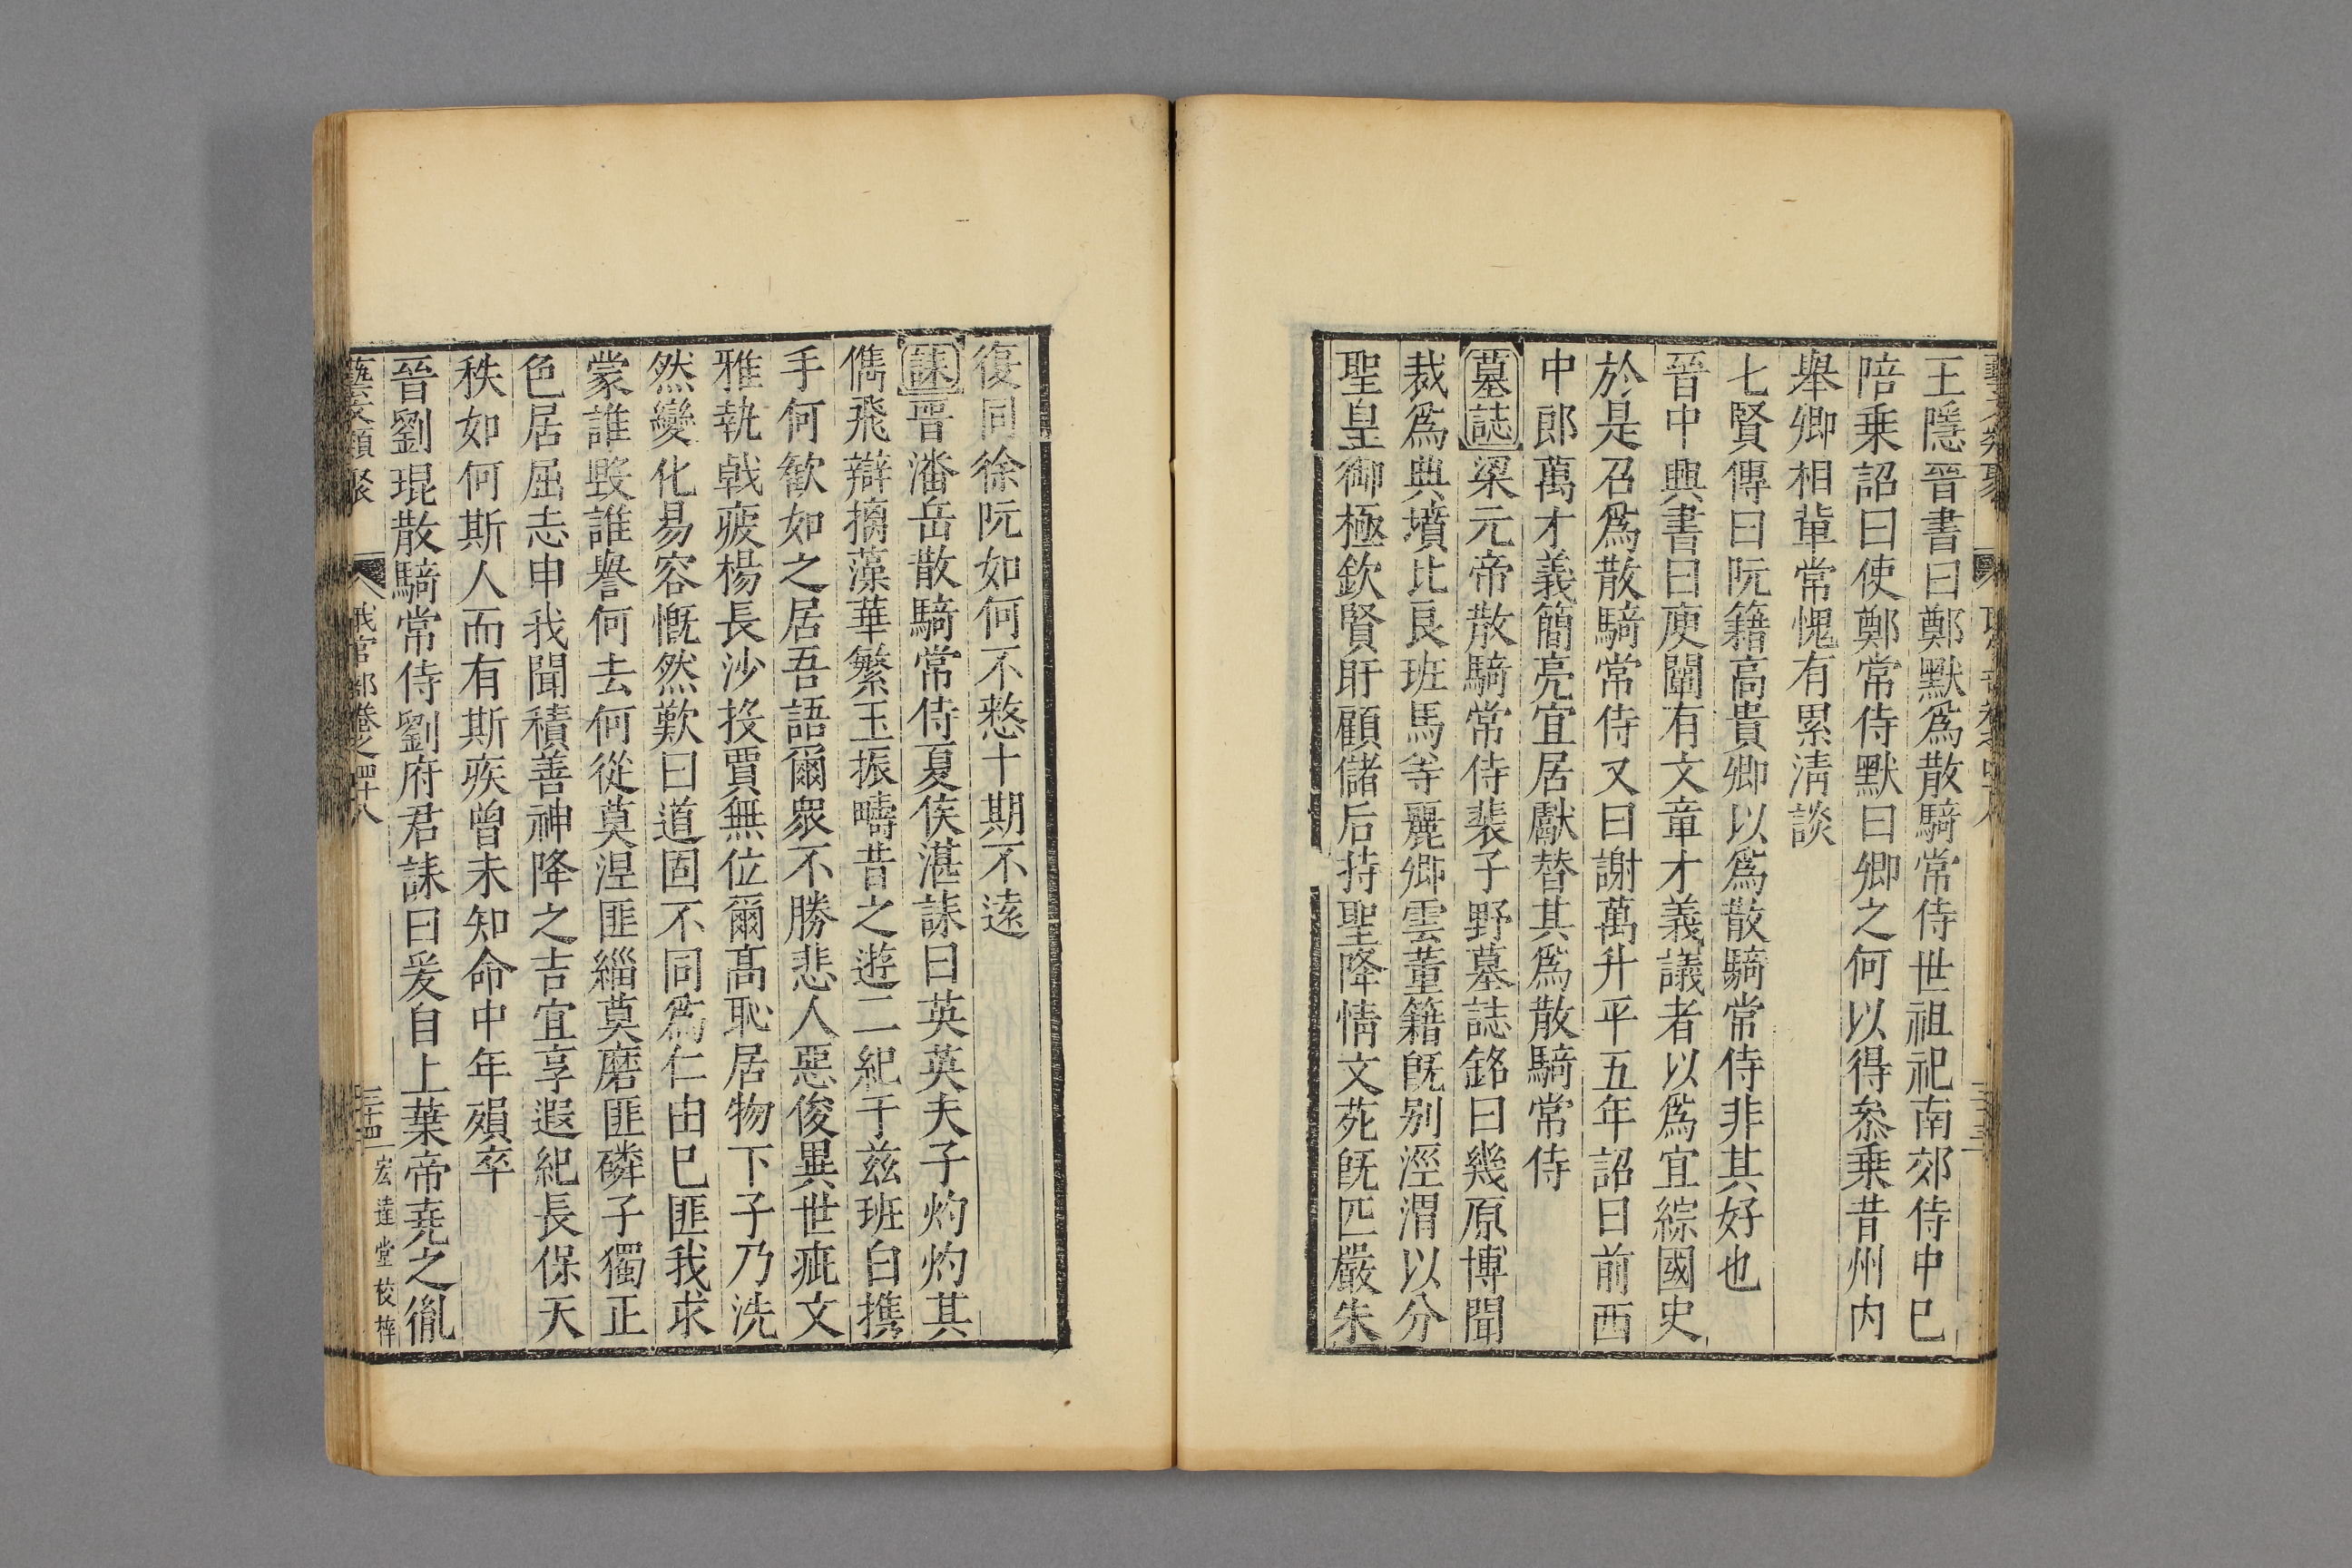 王隱晉書曰鄭默爲散騎常侍世祖祀南郊侍中巳
陪乗詔曰使鄭常侍默曰卿之何以得叅乗昔州内
舉卿相軰常愧有累淸談
七賢傳曰阮籍高貴卿以爲散騎常侍非其好也
晉中興書曰庾闡有文章才義議者以爲宜綜國史
於是召爲散騎常侍又曰謝萬升平五年詔曰前西
中郎萬才義簡亮宜居獻替其爲散騎常侍
墓誌梁元帝散騎常侍裴子野墓誌銘曰幾原博聞
裁爲典墳比良班馬等麗卿雲董籍旣别涇渭以分
聖皇御極欽賢盱顧儲后持聖降情文苑旣匹嚴朱
復同徐阮如何不憗十期不遠
誄晉潘岳散騎常侍夏侯湛誄曰英英夫子灼灼其
儁飛辯摛藻華繁玉振疇昔之遊二紀于兹班白携
手何歓如之居吾語爾衆不勝悲人惡俊異世疵文
雅執戟疲楊長沙投賈無位爾髙恥居物下子乃洗
然變化易容慨然歎曰道固不同爲仁由巳匪我求
蒙誰毁誰譽何去何從莫涅匪緇莫磨匪磷子獨正
色居屈志申我聞積善神降之吉宜享遐紀長保天
秩如何斯人而有斯疾曾未知命中年殞卒
晉劉琨散騎常侍劉府君誄曰爰自上葉帝堯之胤
藝文類聚 職官部卷之四十八 三十四 宏逹堂校梓